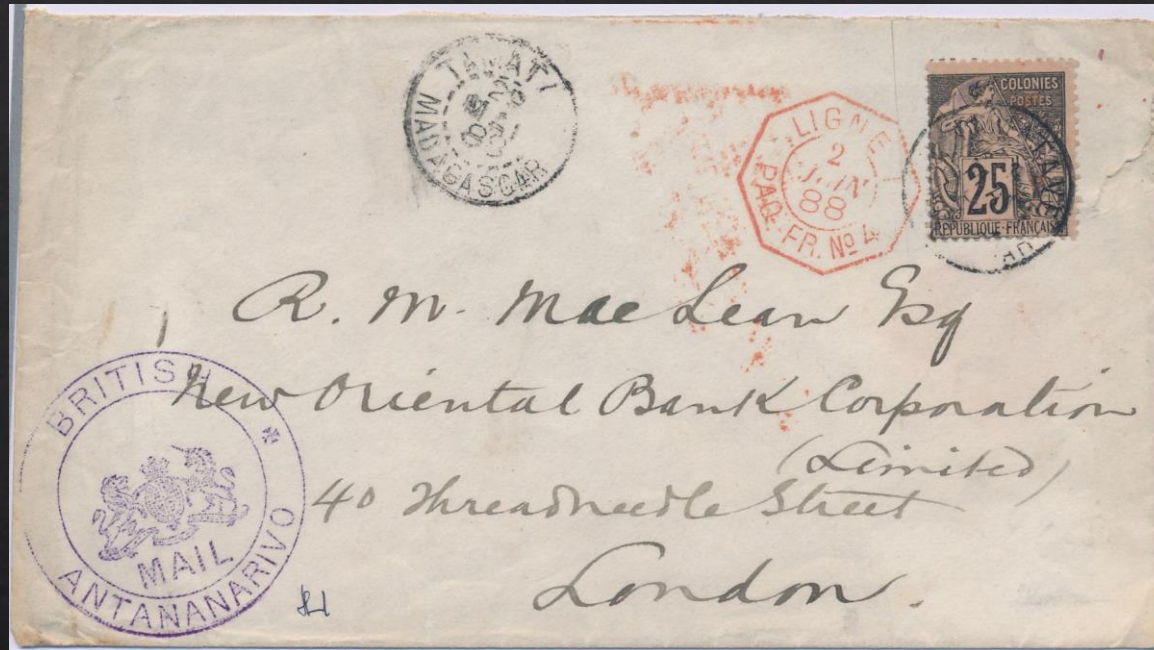 MADAGASCAR
LIGNE
2
JUIN
88
PAQ. FR. No 4
COLONIES
POSTES
25
REPUBLIQUE FRANÇAIS
R. M. MacLean Esq
New Oriental Bank Corporation
(Limited)
40 Threadneedle Street
London.
BRITISH
MAIL
ANTANANARIVO